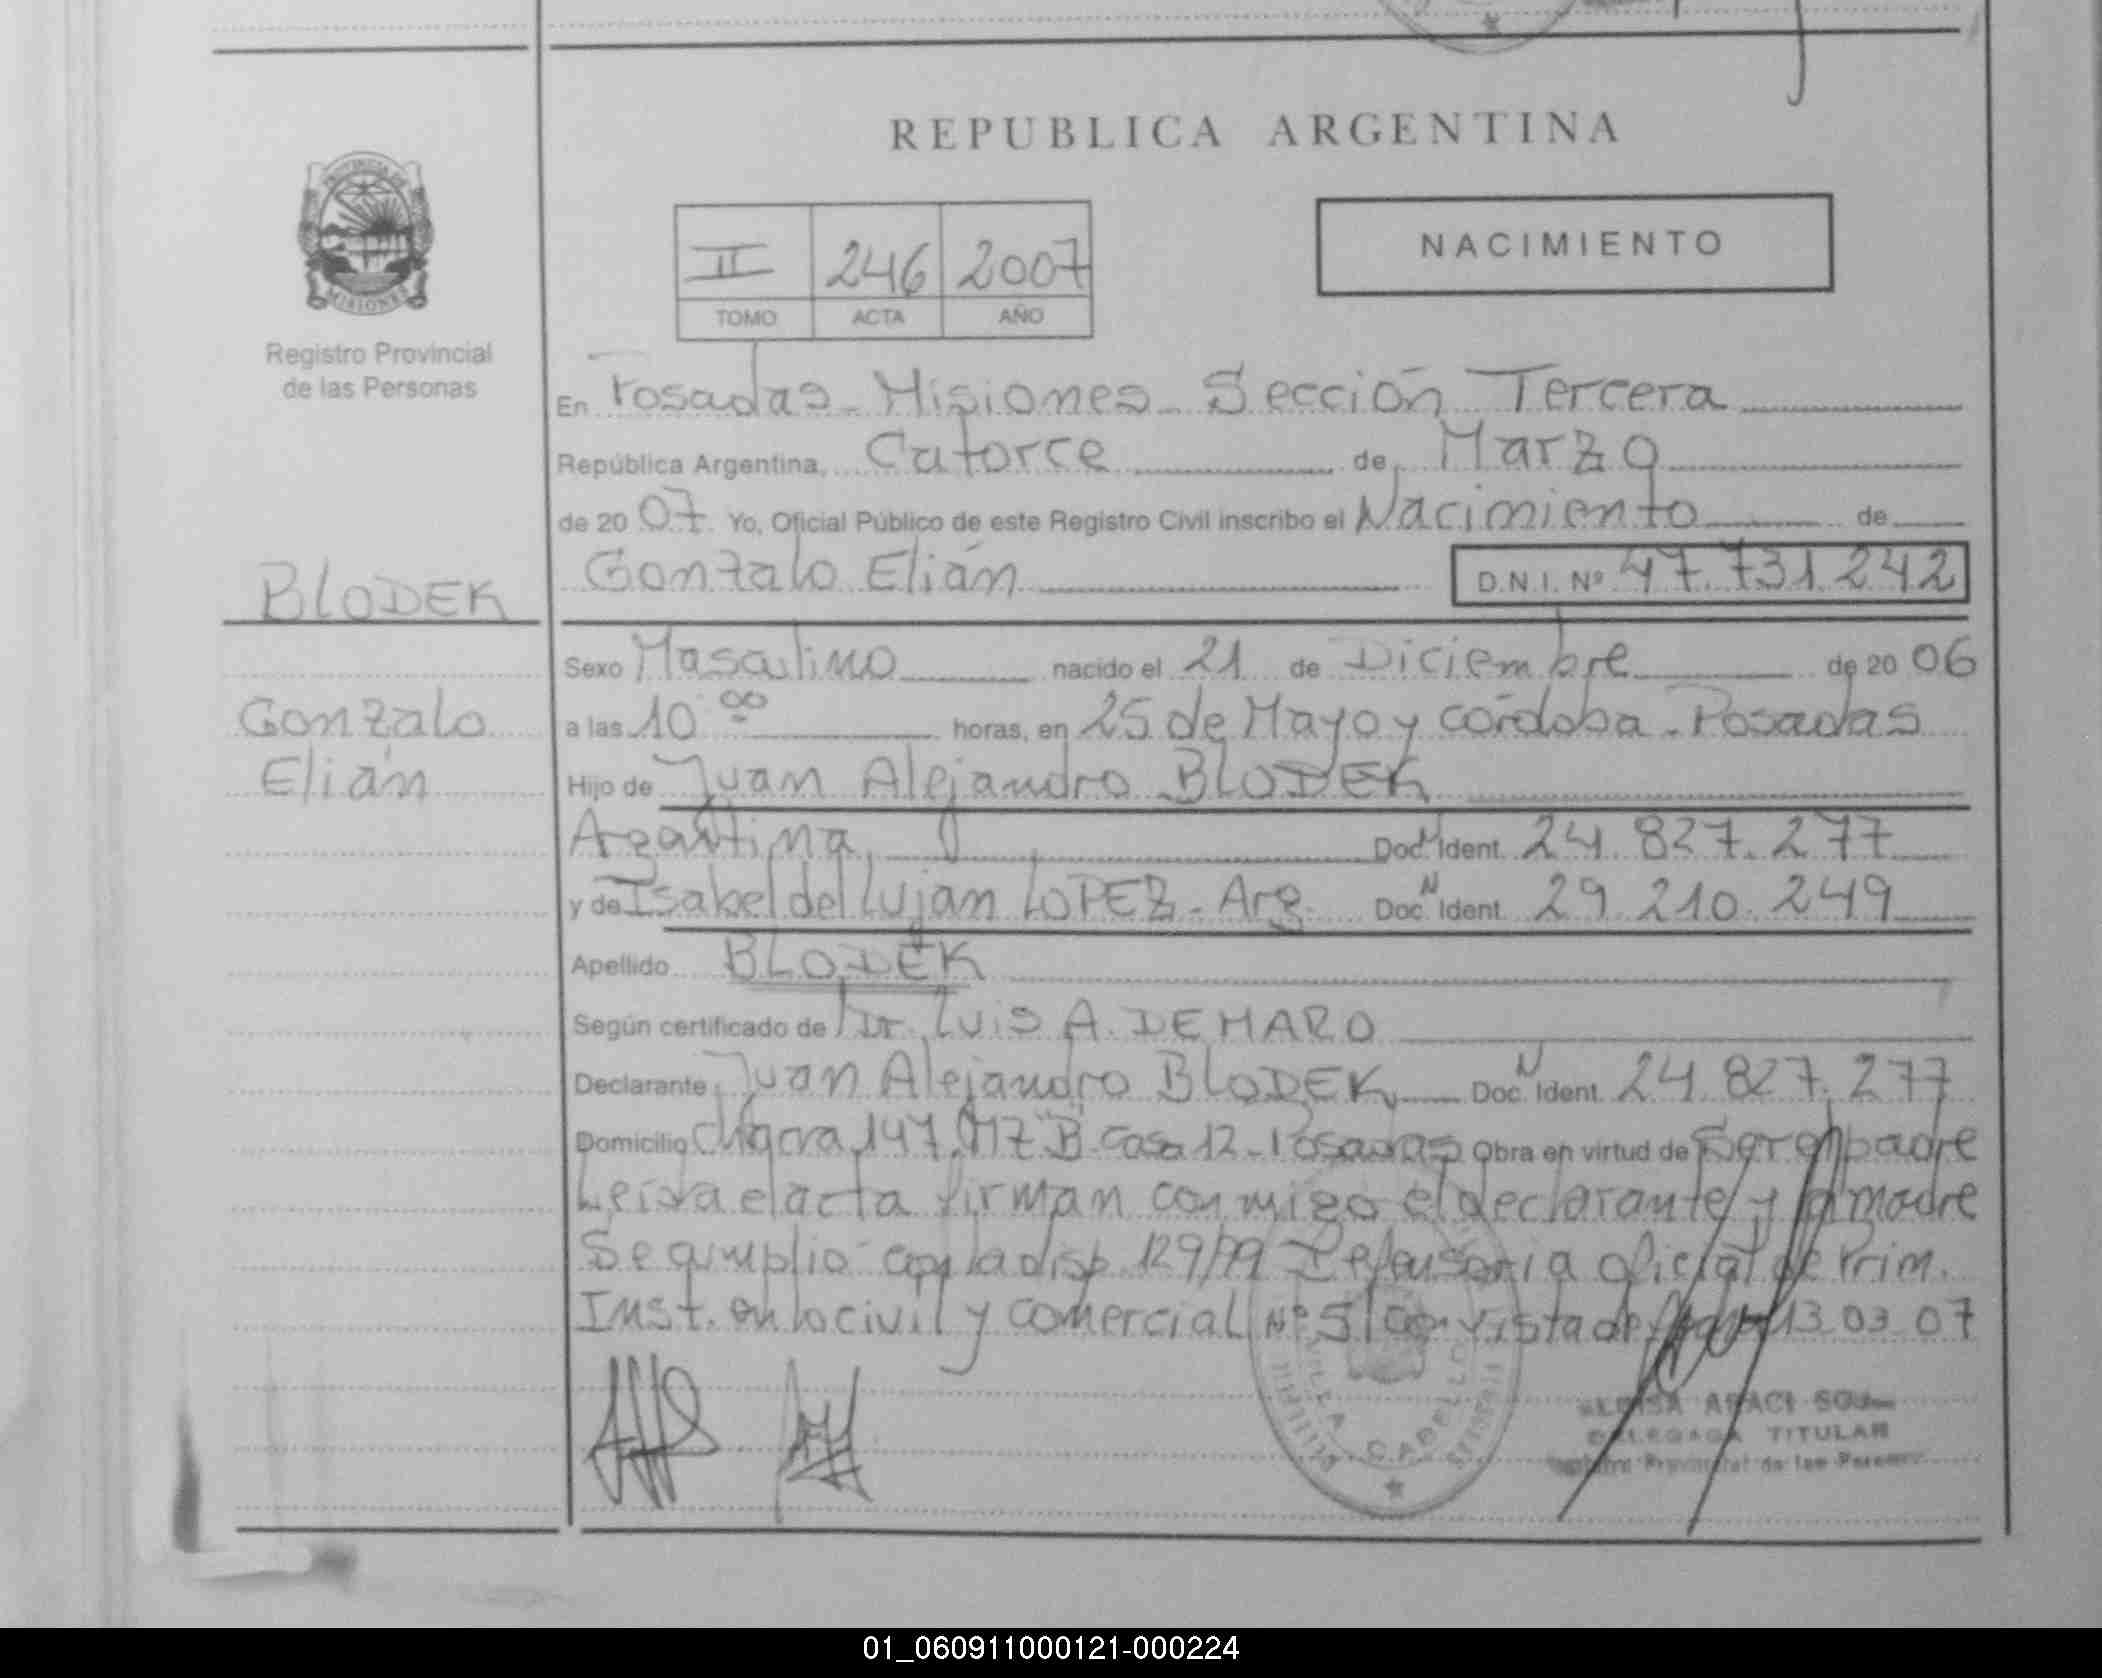 REPUBLICA ARGENTINA
PROVINCIA DE
MISIONES
Registro Provincial
de las Personas
II 246 2007
TOMO ACTA AÑO
NACIMIENTO
En Posadas - Misiones - Sección Tercera
República Argentina, Catorce de Marzo
de 20 07 Yo, Oficial Público de este Registro Civil inscribo el Nacimiento de
Gonzalo Elián D.N.I. Nº 47.731.242
BLODEK
Gonzalo
Elián
Sexo Masculino nacido el 21 de Diciembre de 20 06
a las 10 00 horas, en 25 de Mayo y córdoba - Posadas
Hijo de Juan Alejandro BLODEK
Argentina Doc. N Ident. 24.827.277
y de Isabel del Lujan LOPEZ - Arg. Doc. N Ident. 29.210.249
Apellido BLODEK
Según certificado de Dr. Luis A. DEMARO
Declarante Juan Alejandro BLODEK Doc. N Ident. 24.827.277
Domicilio Chacra 147 MZ B casa 12 - Posadas Obra en virtud de Ser el padre
Leida el acta firman conmigo el declarante y la madre
Se cumplio con la disp 129/99 Defensoria oficial de Prim.
Inst. en lo civil y comercial Nº 5 con vista de 13 03 07
VILLA CABELLO
ARACI
DELEGADA TITULAR
Registro Provincial de las Personas
01_060911000121-000224